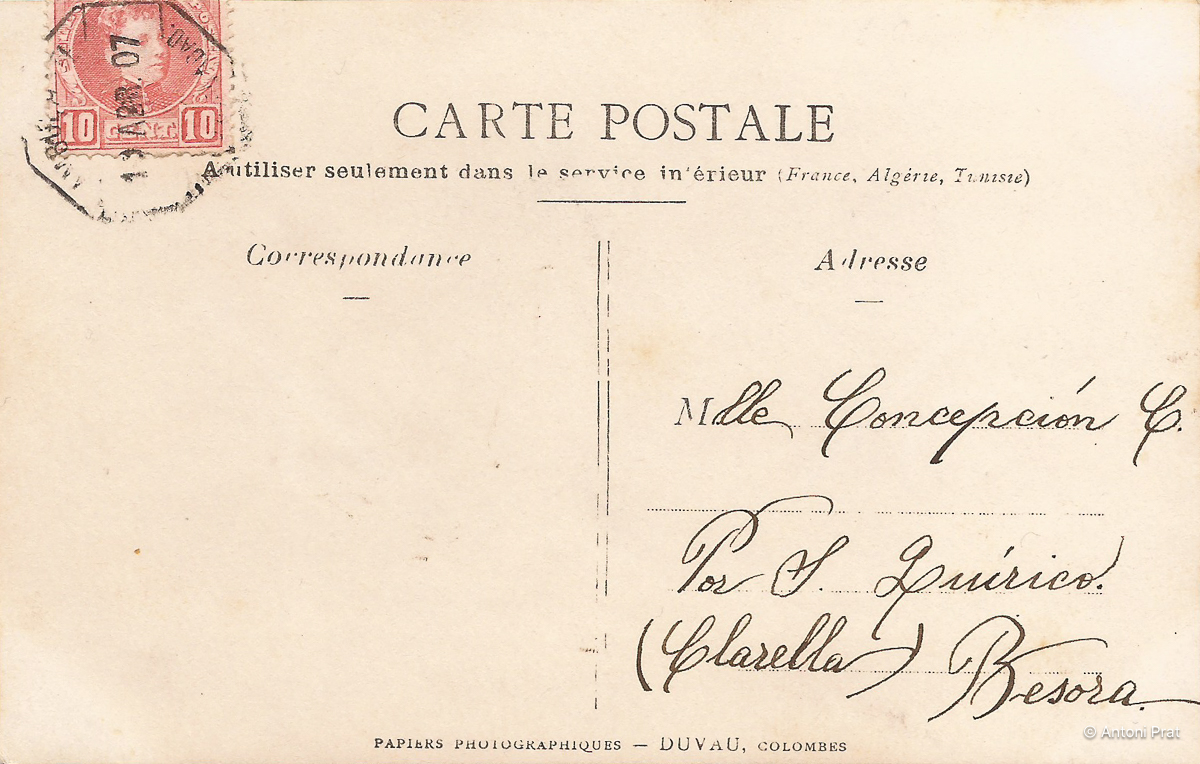 10 CENT. 10
19 ABR. 07
CARTE POSTALE
A utiliser seulement dans le service intérieur (France, Algérie, Tunisie)
Correspondance
Adresse
Mlle Concepción C.
Por S. Quírico.
(Clarella) Besora
PAPIERS PHOTOGRAPHIQUES — DUVAU, COLOMBES
© Antoni Prat